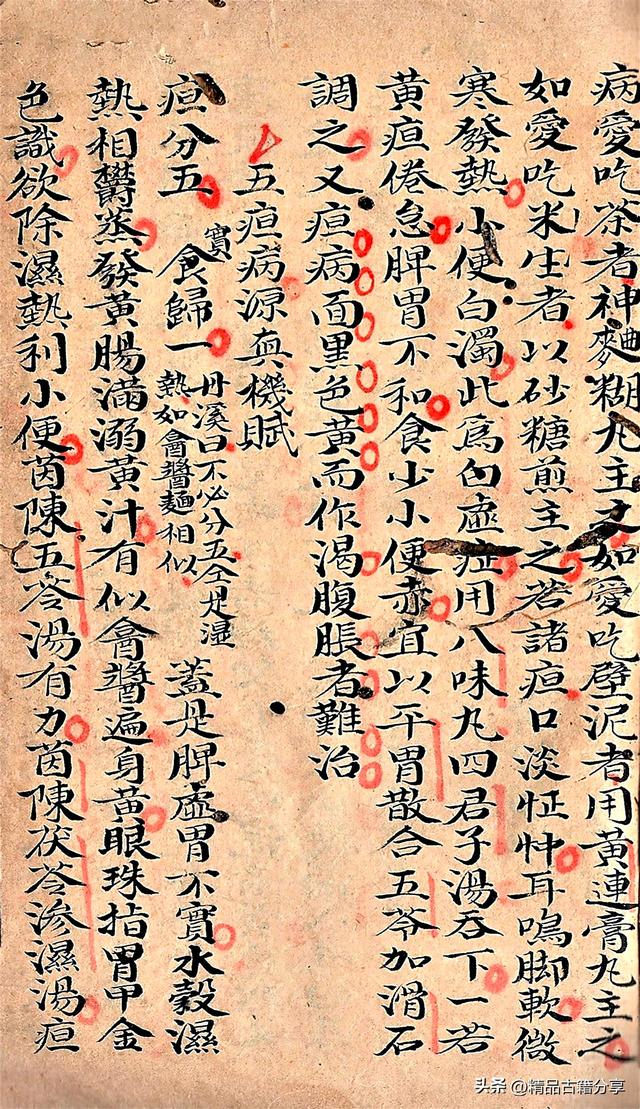 病愛吃茶者神麯糊丸主之如愛吃壁泥者用黃連膏丸主之
如愛吃米生者以砂糖煎主之若諸疸口淡怔忡耳鳴脚軟微
寒發熱小便白濁此為白虛症用八味丸四君子湯吞下一若
黃疸倦怠脾胃不和食少小便赤宜以平胃散合五苓加滑石
調之又疸病面黑色黃而作渴腹脹者難治
五疸病源真機賦
疸分五實食歸一丹溪曰不必分五仝是濕
熱如罨醬麵相似
蓋是脾虛胃不實水穀濕
熱相欝蒸發黃腸滿溺黃汁有似罨醬遍身黃眼珠指胃甲金
色識欲除濕熱利小便茵陳五苓湯有力茵陳茯苓滲濕湯疸
头条 @精品古籍分享